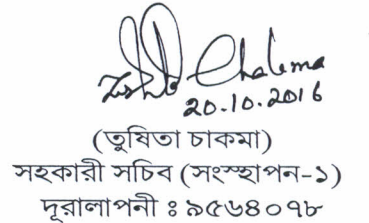 Tushita Chakma
20.10.2016
(তুষিতা চাকমা)
সহকারী সচিব (সংস্থাপন-১)
দূরালাপনী ঃ ৯৫৬৪০৭৮